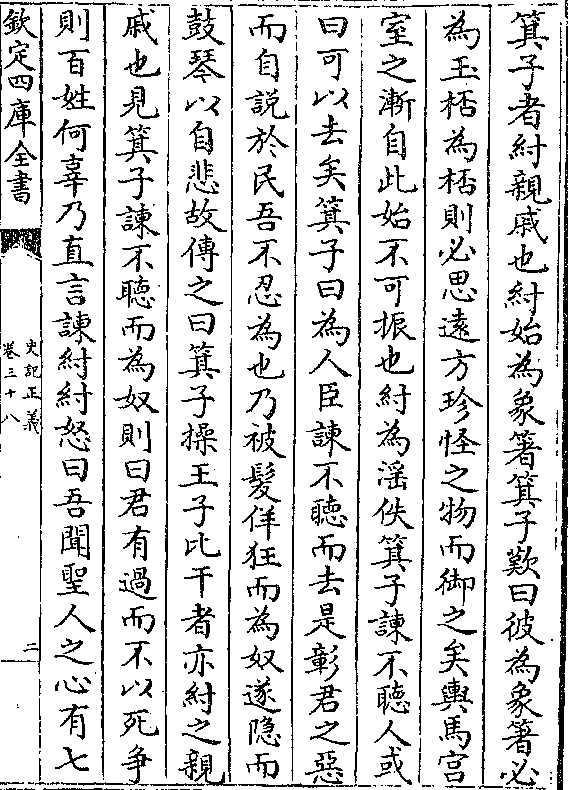 箕子者紂親戚也紂始為象箸箕子歎曰彼為象箸必
為玉桮為桮則必思遠方珍怪之物而御之矣輿馬宮
室之漸自此始不可振也紂為淫佚箕子諫不聽人或
曰可以去矣箕子曰為人臣諫不聽而去是彰君之惡
而自説於民吾不忍為也乃被髮佯狂而為奴遂隠而
鼓琴以自悲故傳之曰箕子操王子比干者亦紂之親
戚也見箕子諫不聽而為奴則曰君有過而不以死爭
則百姓何辜乃直言諫紂紂怒曰吾聞聖人之心有七
欽定四庫全書
史記正義
卷三十八
二